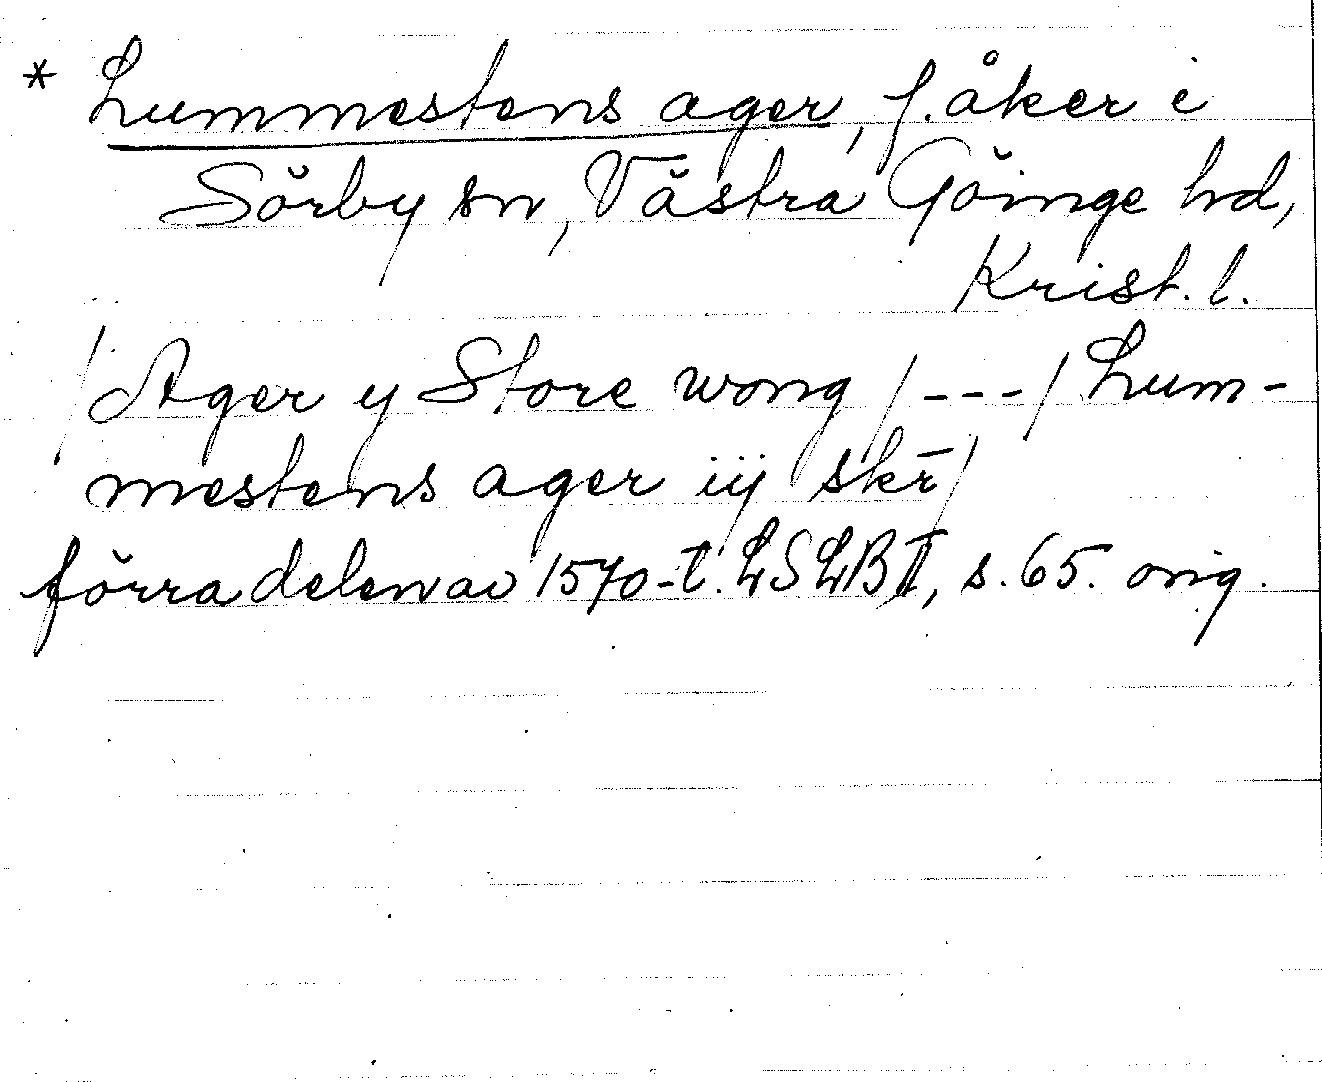 * Lummestens ager, f. åker i
Sörby sn, Västra Göinge hd,
Krist. l.
/Ager y Store wong /---/ Lum-
mestens ager iij skr̄/
förra delen av 1570-t. LSLB I, s. 65. orig.